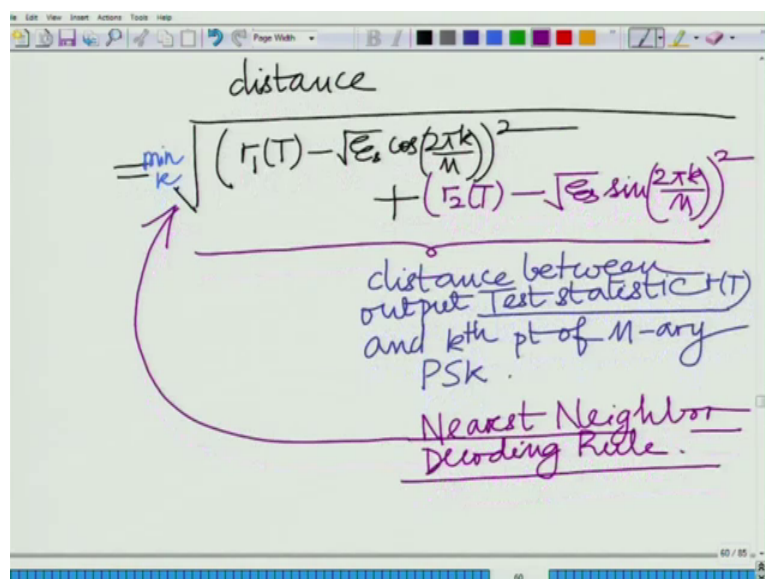 File Edit View Insert Actions Tools Help
Page Width
distance
= min k √( (r₁(T) − √Eₛ cos(2πk/M))²
+ (r₂(T) − √Eₛ sin(2πk/M))² )
distance between
output Test statistic r(T)
and kth pt of M-ary
PSK.
Nearest Neighbor
Decoding Rule.
60 / 85
60